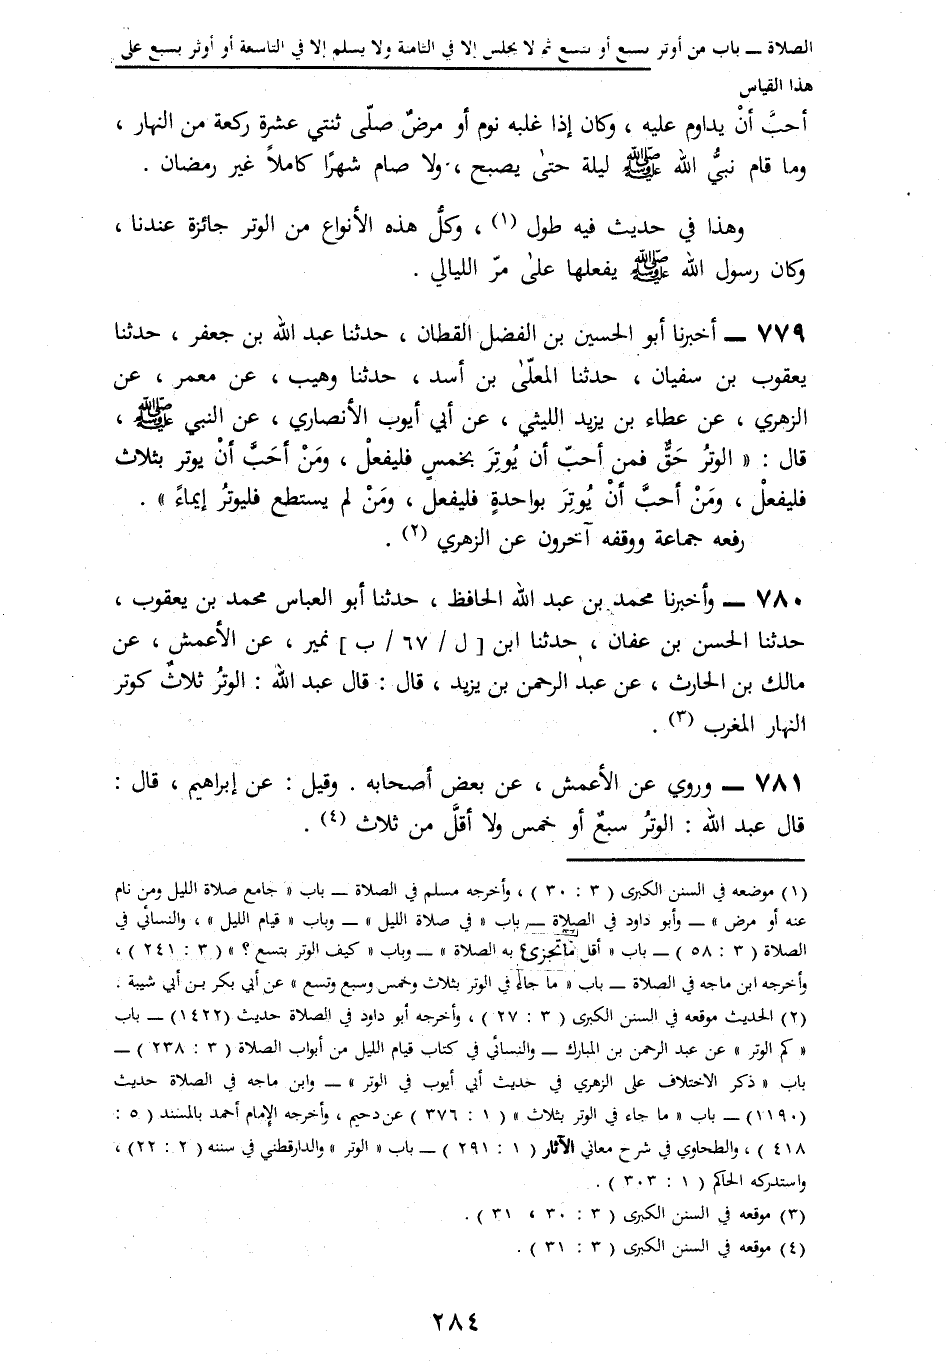 الصلاة ــ باب من أوتر بسبع أو بتسع ثم لا يجلس إلا في الثامنة ولا يسلم إلا في التاسعة أو أوتر بسبع على
هذا القياس
أحبَّ أنْ يداوم عليه ، وكان إذا غلبه نوم أو مرضٌ صلّى ثنتي عشرة ركعة من النهار ،
وما قام نبيُّ الله ﷺ ليلة حتىٰ يصبح ، ولا صام شهرًا كاملاً غير رمضان .
وهذا في حديث فيه طول (١) ، وكلُّ هذه الأنواع من الوتر جائزة عندنا ،
وكان رسول الله ﷺ يفعلها علىٰ مرّ الليالي .
٧٧٩ ــ أخبرنا أبو الحسين بن الفضل القطان ، حدثنا عبد الله بن جعفر ، حدثنا
يعقوب بن سفيان ، حدثنا المعلّىٰ بن أسد ، حدثنا وهيب ، عن معمر ، عن
الزهري ، عن عطاء بن يزيد الليثي ، عن أبي أيوب الأنصاري ، عن النبي ﷺ ،
قال : « الوترُ حَقٌّ فمن أحبّ أن يُوتِرَ بخمسٍ فليفعلْ ، ومَنْ أحَبَّ أنْ يوتر بثلاث
فليفعلْ ، ومَنْ أحبَّ أنْ يُوتِرَ بواحدةٍ فليفعل ، ومَنْ لم يستطع فليوترُ إيماءً » .
رفعه جماعة ووقفه آخرون عن الزهري (٢) .
٧٨٠ ــ وأخبرنا محمد بن عبد الله الحافظ ، حدثنا أبو العباس محمد بن يعقوب ،
حدثنا الحسن بن عفان ، حدثنا ابن [ ل / ٦٧ / ب ] نمير ، عن الأعمش ، عن
مالك بن الحارث ، عن عبد الرحمن بن يزيد ، قال : قال عبد الله : الوترُ ثلاثٌ كوتر
النهار المغرب (٣) .
٧٨١ ــ وروي عن الأعمش ، عن بعض أصحابه . وقيل : عن إبراهيم ، قال :
قال عبد الله : الوترُ سبعٌ أو خمس ولا أقلَّ من ثلاث (٤) .
(١) موضعه في السنن الكبرى ( ٣ : ٣٠ ) ، وأخرجه مسلم في الصلاة ــ باب « جامع صلاة الليل ومن نام
عنه أو مرض » ــ وأبو داود في الصلاة ــ باب « في صلاة الليل » ــ وباب « قيام الليل » ، والنسائي في
الصلاة ( ٣ : ٥٨ ) ــ باب « أقل ما تجزئ به الصلاة » ــ وباب « كيف الوتر بتسع ؟ » ( ٣ : ٢٤١ ) ،
وأخرجه ابن ماجه في الصلاة ــ باب « ما جاء في الوتر بثلاث وخمس وسبع وتسع » عن أبي بكر بن أبي شيبة .
(٢) الحديث موقعه في السنن الكبرى ( ٣ : ٢٧ ) ، وأخرجه أبو داود في الصلاة حديث (١٤٢٢) ــ باب
« كم الوتر » عن عبد الرحمن بن المبارك ــ والنسائي في كتاب قيام الليل من أبواب الصلاة ( ٣ : ٢٣٨ ) ــ
باب « ذكر الاختلاف على الزهري في حديث أبي أيوب في الوتر » ــ وابن ماجه في الصلاة حديث
(١١٩٠) ــ باب « ما جاء في الوتر بثلاث » ( ١ : ٣٧٦ ) عن دحيم ، وأخرجه الإمام أحمد بالمسند ( ٥ :
٤١٨ ) ، والطحاوي في شرح معاني الآثار ( ١ : ٢٩١ ) ــ باب « الوتر » والدارقطني في سننه ( ٢ : ٢٢ ) ،
واستدركه الحاكم ( ١ : ٣٠٣ ) .
(٣) موقعه في السنن الكبرى ( ٣ : ٣٠ ، ٣١ ) .
(٤) موقعه في السنن الكبرى ( ٣ : ٣١ ) .
٢٨٤